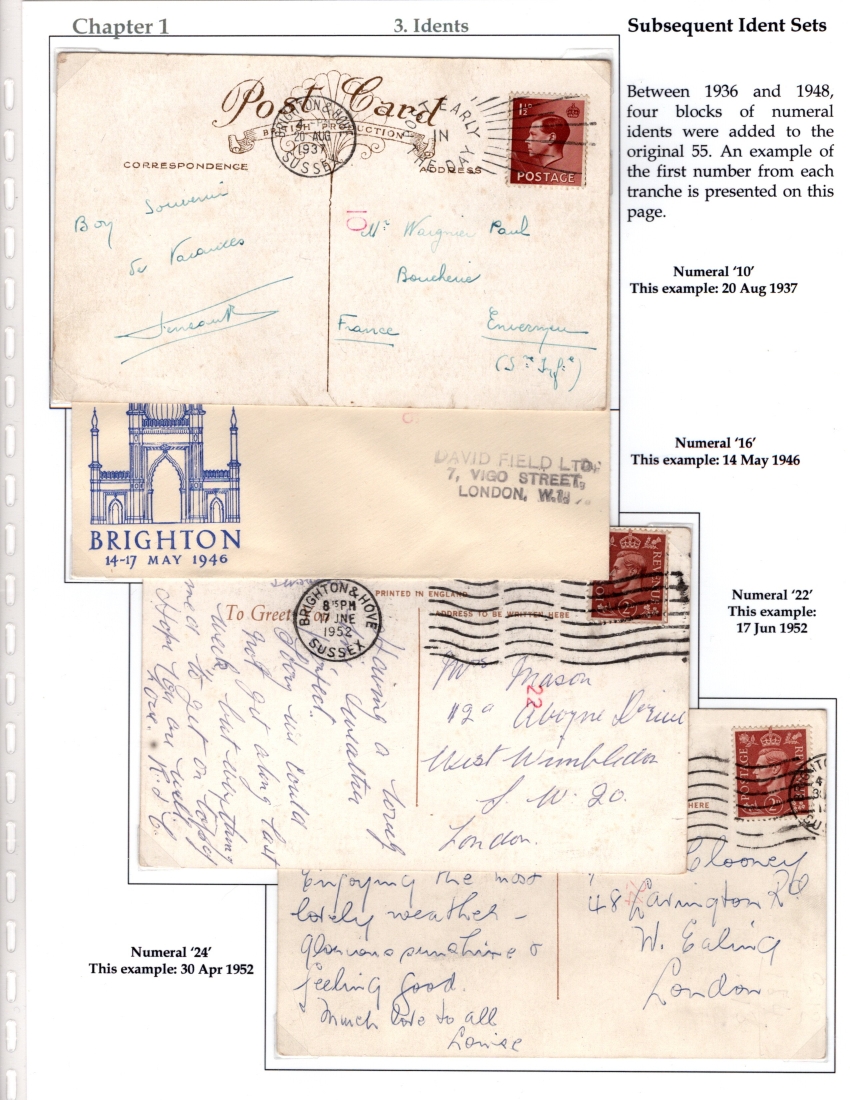 Chapter 1
3. Idents
Subsequent Ident Sets
Between 1936 and 1948,
four blocks of numeral
idents were added to the
original 55. An example of
the first number from each
tranche is presented on this
page.
Numeral ‘10’
This example: 20 Aug 1937
Numeral ‘16’
This example: 14 May 1946
Numeral ‘22’
This example:
17 Jun 1952
Numeral ‘24’
This example: 30 Apr 1952
Post Card
BRITISH PRODUCTION
CORRESPONDENCE
ADDRESS
BRIGHTON & HOVE
20 AUG
1937
SUSSEX
POST EARLY
IN
THE DAY
1½D
POSTAGE
10
Bon Souvenir
de Vacances
Mr Wargnier Paul
Boucherie
France
Envermeu
(Sne Infre)
DAVID FIELD LTD.
7, VIGO STREET,
LONDON, W.1.
BRIGHTON
14-17 MAY 1946
BRIGHTON & HOVE
8 15 PM
17 JNE
1952
SUSSEX
PRINTED IN ENGLAND
To Greet You
ADDRESS TO BE WRITTEN HERE
REVENUE
22
Having a lovely
perfect.
Sorry we could
not get along last
week, but everything
to get on
Hope you are well.
Love
Mrs Mason
42a Aboyne Drive
West Wimbledon
S. W. 20.
London.
POSTAGE
HERE
Clooney
48 Lavington Rd
W. Ealing
London
Enjoying the most
lovely weather –
glorious sunshine &
feeling good.
Much love to all
Louise